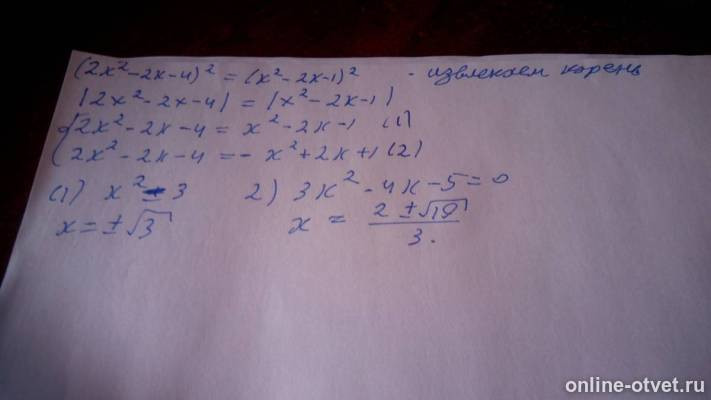 (2x²-2x-4)² = (x²-2x-1)² - извлекаем корень
|2x²-2x-4| = |x²-2x-1|
{2x²-2x-4 = x²-2x-1 (1)
2x²-2x-4 = -x²+2x+1 (2)
(1) x² = 3 2) 3x²-4x-5=0
x = ±√3 x = (2 ± √19)/3.
online-otvet.ru